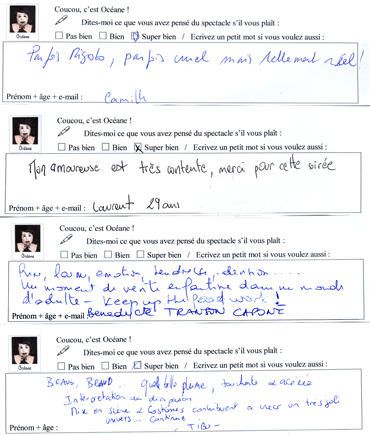 Coucou, c'est Océane !
Dites-moi ce que vous avez pensé du spectacle s'il vous plaît :
Pas bien Bien Super bien / Ecrivez un petit mot si vous voulez aussi :
Parfois Rigolo, parfois cruel mais tellement réel !
Prénom + âge + e-mail : Camille
Océane
Coucou, c'est Océane !
Dites-moi ce que vous avez pensé du spectacle s'il vous plaît :
Pas bien Bien Super bien / Ecrivez un petit mot si vous voulez aussi :
Mon amoureuse est très contente, merci pour cette soirée
Prénom + âge + e-mail : Laurent 29 ans
Océane
Coucou, c'est Océane !
Dites-moi ce que vous avez pensé du spectacle s'il vous plaît :
Pas bien Bien Super bien / Ecrivez un petit mot si vous voulez aussi :
émotion, tendresse
Un moment de vérité enfantine dans un monde
d'adulte - Keep up the good work !
Prénom + âge + e-mail Bénédicte
Océane
Coucou, c'est Océane !
Dites-moi ce que vous avez pensé du spectacle s'il vous plaît :
Pas bien Bien Super bien / Ecrivez un petit mot si vous voulez aussi :
Bravo, Bravo... quelle belle plume, touchante
Interprétation au diapason
Mise en scène & Costumes contribuent à créer un très joli
univers... Continue
Prénom + âge + e-mail :